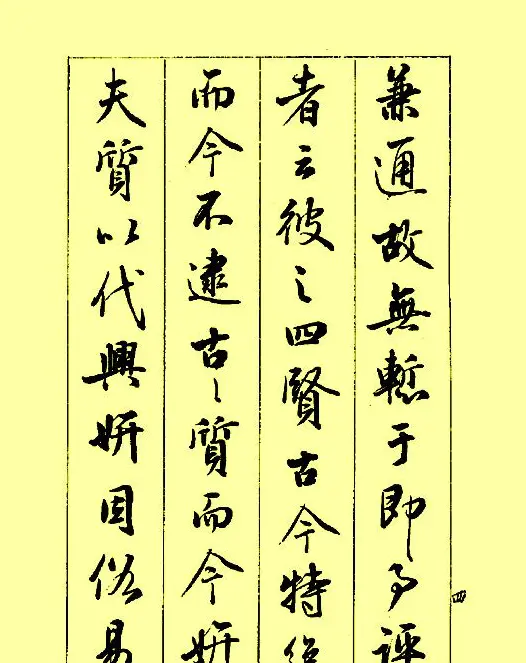 兼通故無慙于即事評
者云彼之四賢古今特絕
而今不逮古〻質而今妍
夫質以代興妍因俗易
四